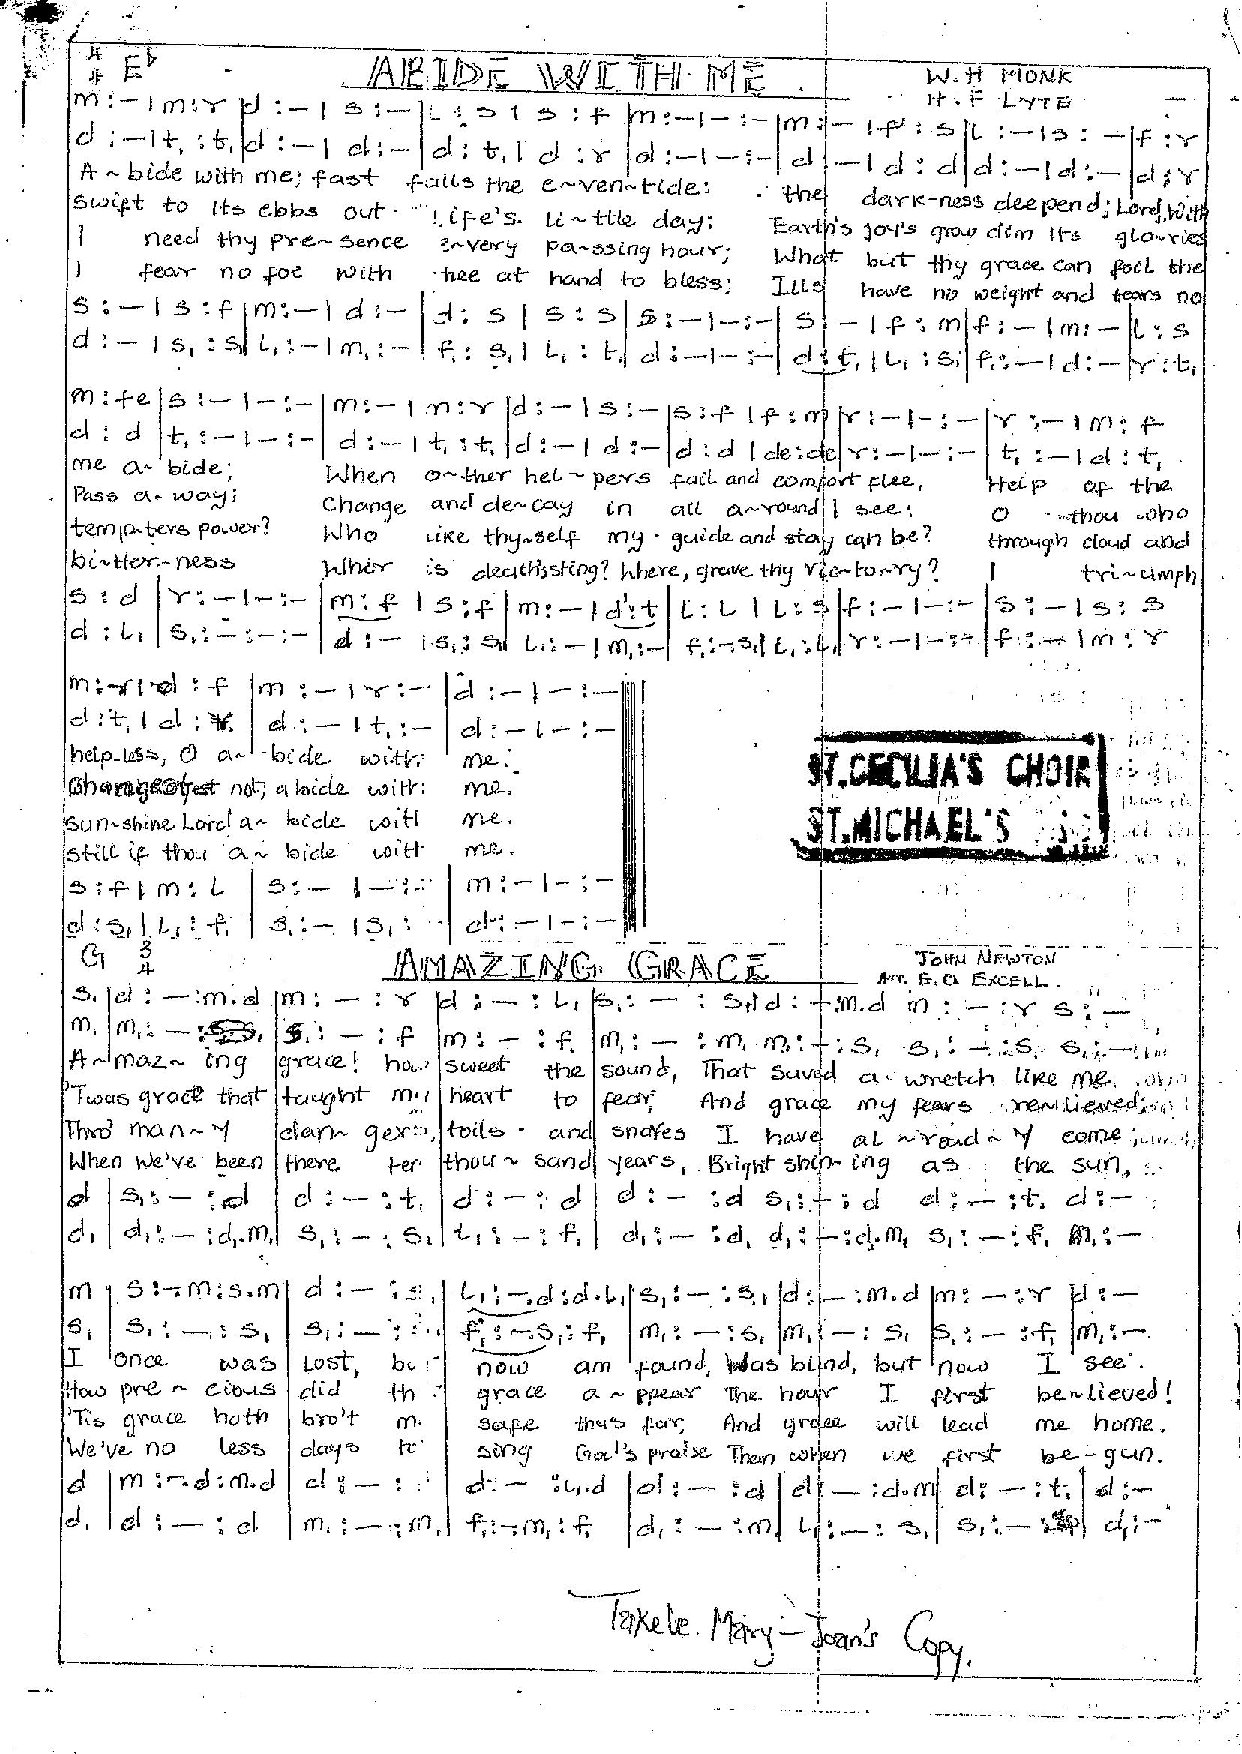 4/4 E♭ ABIDE WITH ME. W.H MONK
H.F LYTE
m:-|m:r|d:-|s:-|L:s|s:f|m:-|-:-|m:-|f:s|L:-|s:-|f:r
d:-|t,:t,|d:-|d:-|d:t,|d:r|d:-|-:-|d:-|d:d|d:-|d:-|d:r
A~bide with me; fast falls the e~ven~tide: the dark-ness deepend; Lord, with
Swift to its ebbs out life's li~ttle day: Earth's joy's grow dim its glo~ries
I need thy pre~sence e~very pa~ssing hour; What but thy grace can foil the
I fear no foe with thee at hand to bless; Ills have no weight and tears no
s:-|s:f|m:-|d:-|d:s|s:s|s:-|-:-|s:-|f:m|f:-|m:-|L:s
d:-|s,:s,|L,:-|m,:-|f,:s,|L,:t,|d:-|-:-|d:t,|L,:s,|f,:-|d:-|r:t,
m:fe|s:-|-:-|m:-|m:r|d:-|s:-|s:f|f:m|r:-|-:-|r:-|m:f
d:d|t,:-|-:-|d:-|t,:t,|d:-|d:-|d:d|de:de|r:-|-:-|t,:-|d:t,
me a~bide; When o~ther hel~pers fail and comfort flee, Help of the
Pass a~way; Change and de~cay in all a~round I see; O thou who
tempters power? Who like thy~self my guide and stay can be? through cloud and
bi~tter~ness Wher is death's sting? Where, grave thy vic~to~ry? I tri~umph
s:d|r:-|-:-|m:f|s:f|m:-|d':t|L:L|L:s|f:-|-:-|s:-|s:s
d:L,|s,:-:-:-|d:-|s,:s,|L,:-|m,:-|f,:-s,|L,:L,|r:-|-:-|f:-|m:r
m:r|d:f|m:-|r:-|d:-|-:-
d:t,|d: d:-|t,:-|d:-|-:-
help-less, O a~bide with me:
not; abide with me.
sun~shine Lord a~bide with me.
still if thou a~bide with me.
s:f|m:L|s:-|-:-|m:-|-:-
d:s,|L,:f,|s,:-|s,:|d:-|-:-
ST.CECILIA'S CHOIR
ST.MICHAEL'S
G 3/4 AMAZING GRACE JOHN NEWTON
Arr. E.O EXCELL.
s,|d:-:m.d|m:-:r|d:-:L,|s,:-:s,|d:-:m.d m:-:r s:-
m,|m,:- s,:-:f m:-:f,|m,:-:m, m,:-:s, s,:-:s, s,:-
A~maz~ing grace! how sweet the sound, That saved a wretch like me.
'Twas grace that taught my heart to fear, And grace my fears
Thro' man~y dan~gers, toils and snares I have al~read~y come
When we've been there ten thou~sand years, Bright shin~ing as the sun,
d|s,:-:d d:-:t,|d:-:d d:-:d s,:-:d d:-:t, d:-
d,|d,:-:d,.m,|s,:-:s,|L,:-:f,|d,:-:d, d,:-:d,.m, s,:-:f, m,:-
m|s:-.m:s.m|d:-:s,|L,:-.d:d.L,|s,:-:s,|d:-:m.d|m:-:r|d:-
s,|s,:-:s,|s,:-: f,:-.s,:f,|m,:-:s,|m,:-:s,|s,:-:f,|m,:-.
I once was lost, but now am found, Was blind, but now I see.
How pre~cious did th grace a~ppear The hour I first be~lieved!
'Tis grace hath bro't m safe thus far, And grace will lead me home.
We've no less days to sing God's praise Than when we first be~gun.
d|m:-.d:m.d|d:-: d:-:L,.d|d:-:d|d:-:d.m|d:-:t,|d:-
d,|d:-:d|m,:-:m,|f,:-.m,:f,|d,:-:m,|L,:-:s,|s,:- d,:-
Takele. Mary-Joan's Copy.